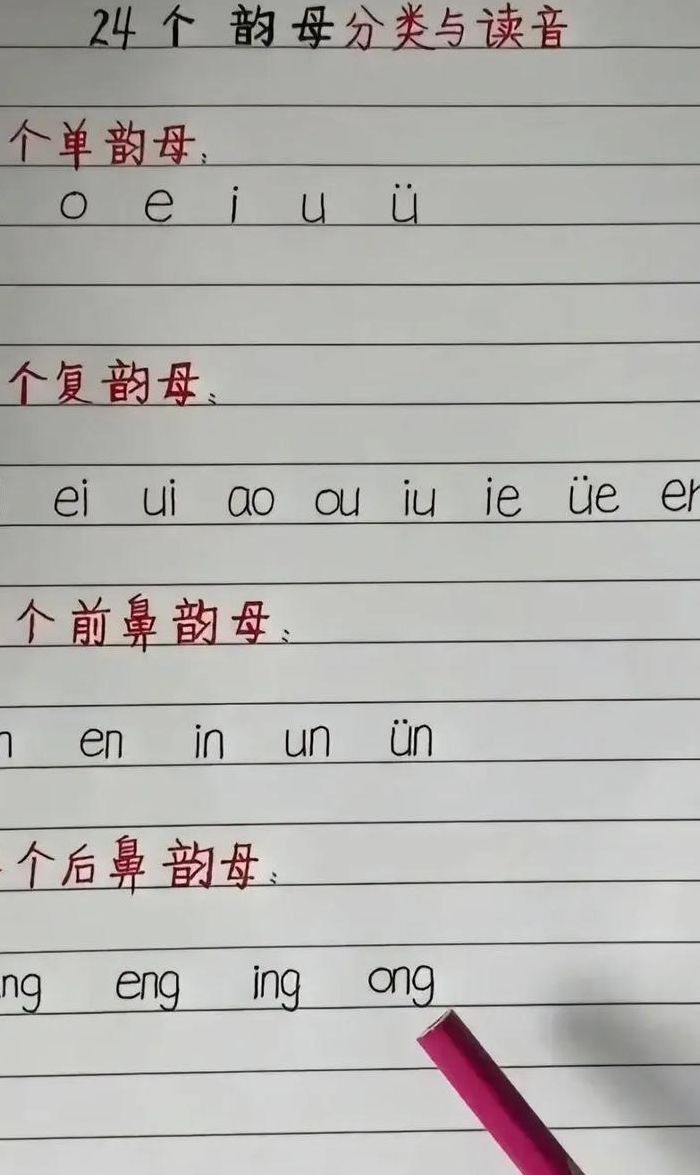 24个 韵母分类与读音
个单韵母:
o e i u ü
个复韵母:
ei ui ao ou iu ie üe er
个前鼻韵母:
n en in un ün
个后鼻韵母:
ng eng ing ong